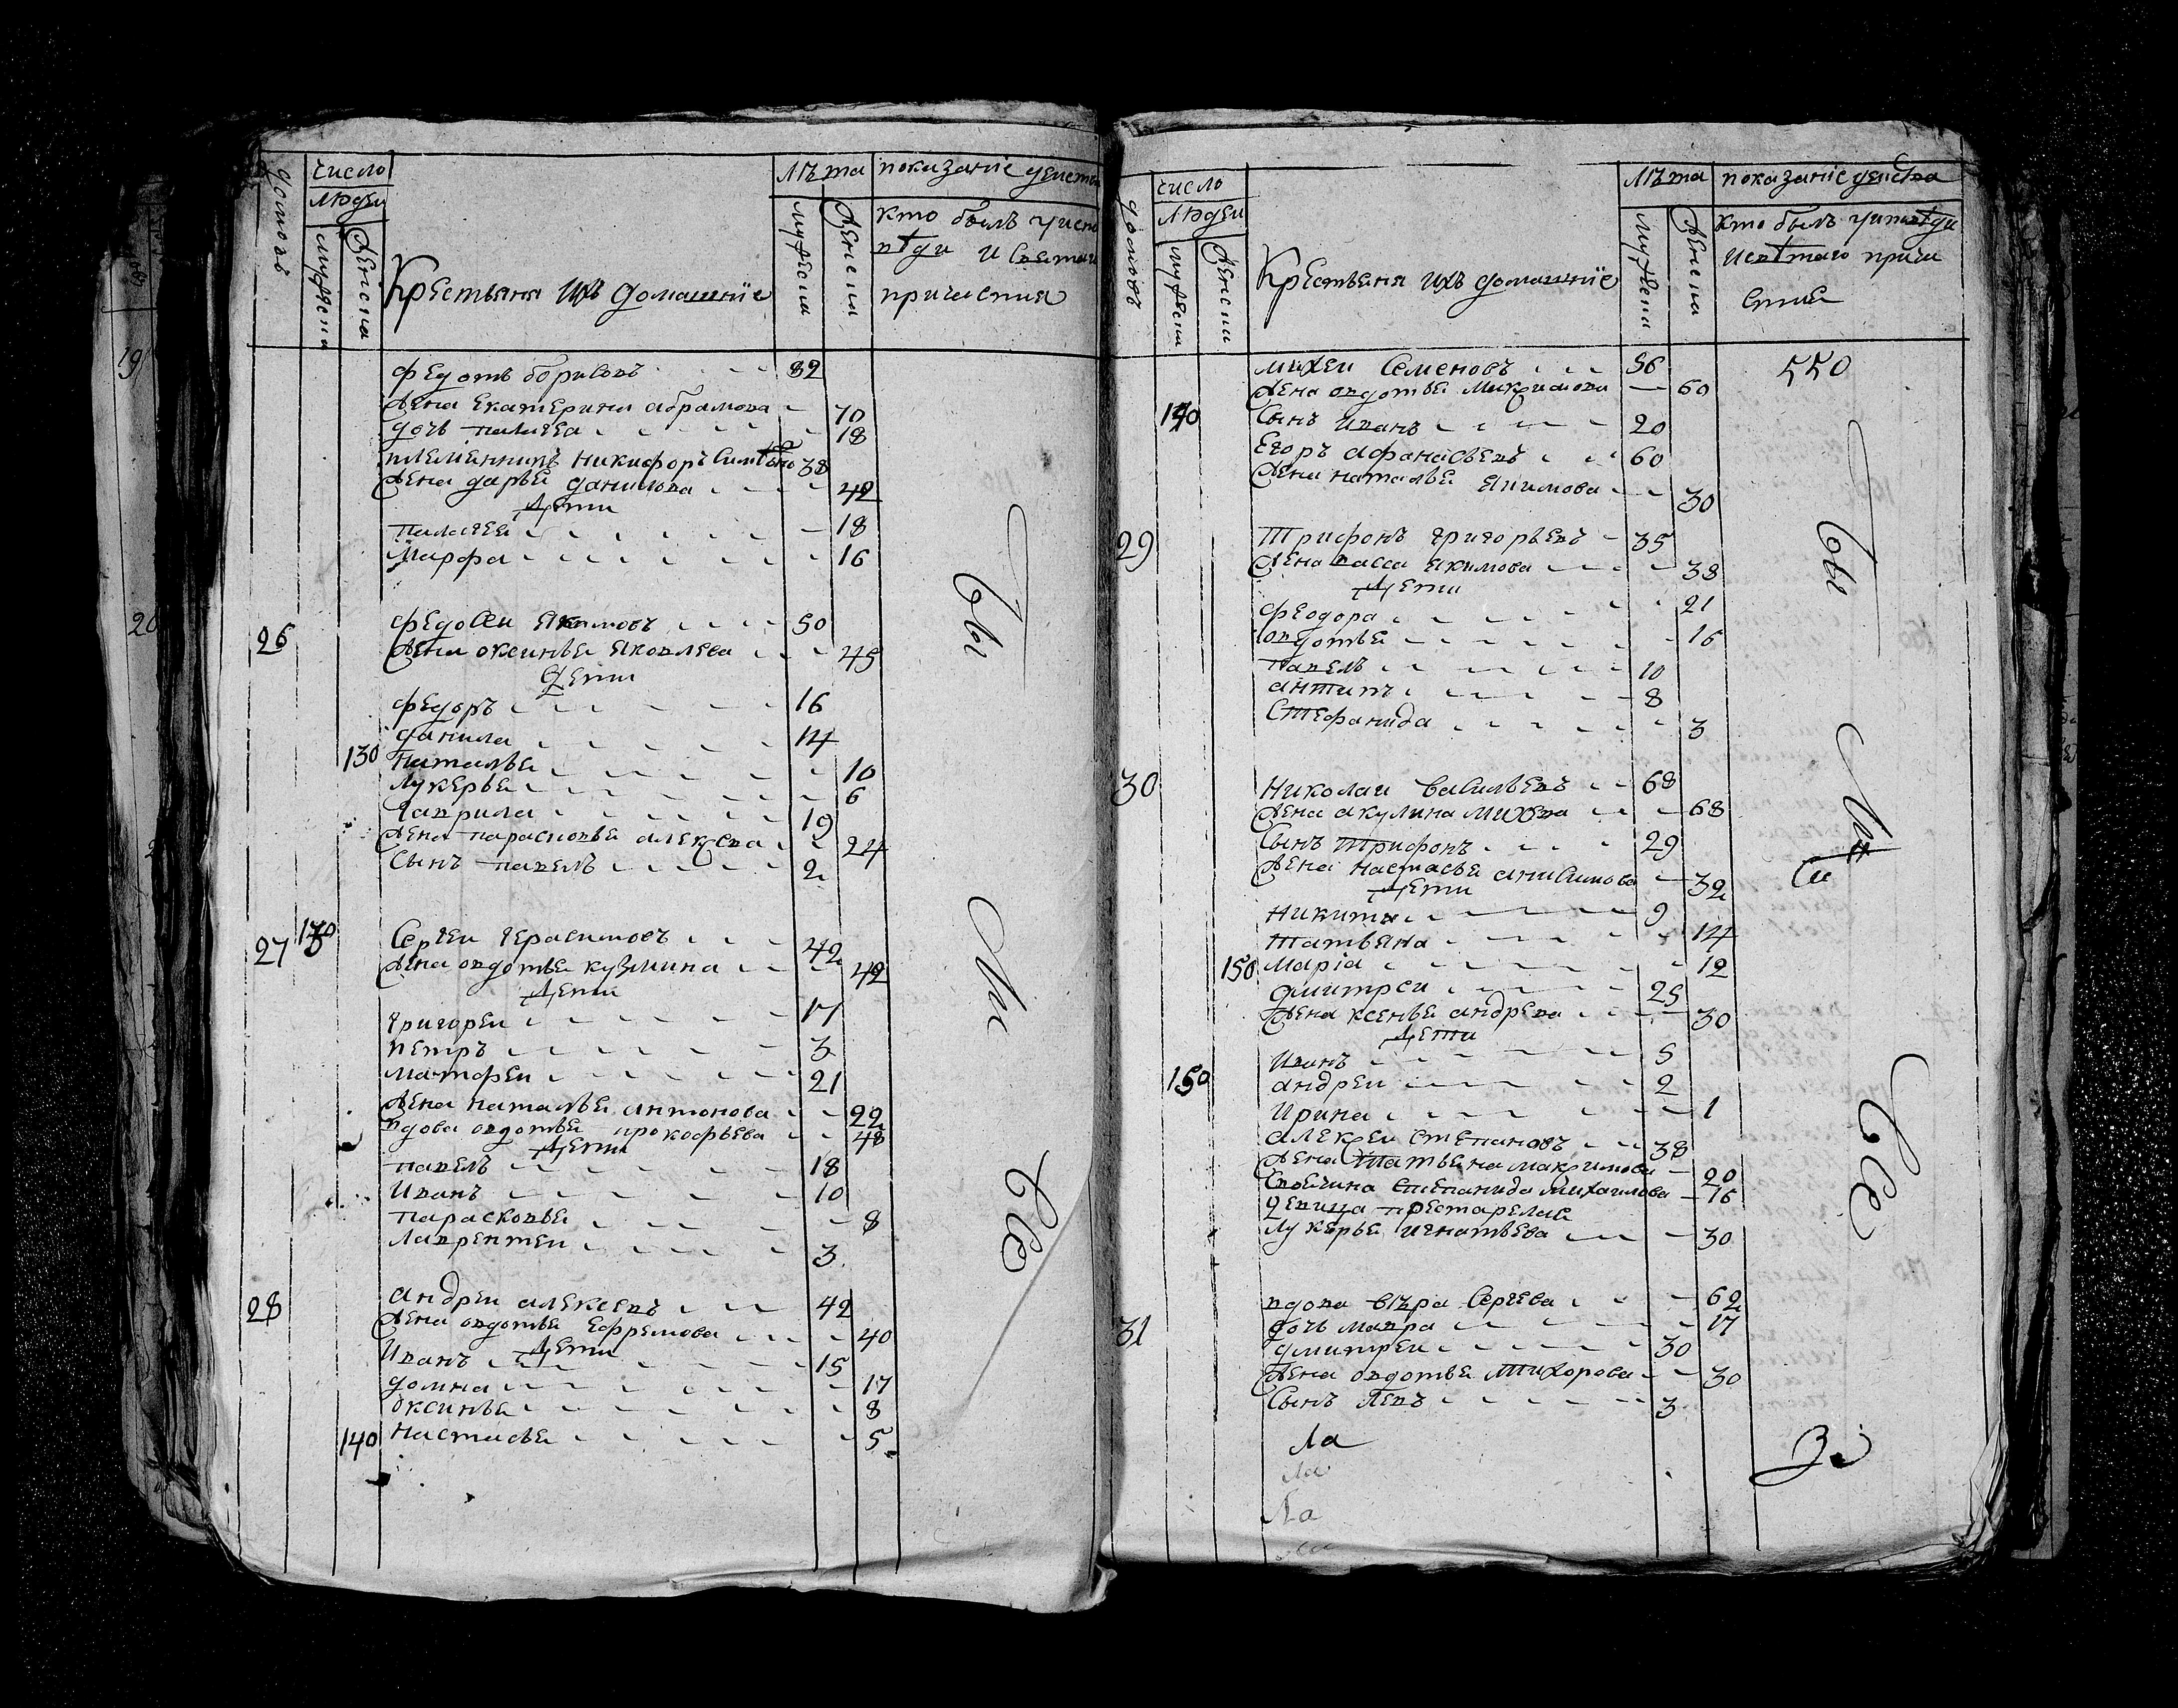 домовъ
число
людеи
мужеска
женска
Крестьяня ихъ домашніе
лѣта
мужеска
женска
показаніе деист
кто былъ у испо
вѣди и светаго
причастия
Федотъ борисовъ 82
Жена Екатерина абрамова 70
дочь палагеа 18
племянникъ Никифоръ 38
Жена дарья данилова 42
Дети
палагея 18
Марфа 16
26 Федосеи Екимовъ 50
Жена оксинья Яковлева 45
Дети
Федоръ 16
данила 14
130 наталья 10
лукерья 6
гаврила 19
Жена парасковья алексева 24
Сынъ павелъ 2
27 130 Сергеи герасимовъ 42
Жена овдотья кузмина 42
Дети
григореи 17
петръ 3
матфеи 21
Жена наталья антонова 22
вдова овдотья прокофьева 48
Дети
павелъ 18
Иванъ 10
парасковья 8
лаврентеи 3
28 андреи алексевъ 42
Жена овдотья Ефремова 40
Дети
Иванъ 15
домна 17
оксинья 8
140 настасья 5
бы
ли
все
домовъ
число
людеи
мужеска
женска
Крестьяня ихъ домашніе
лѣта
мужеска
женска
показаніе деиства
кто былъ у исповѣди
и светаго прича
стия
михеи Семеновъ 56
Жена овдотья Максимова 60
140 Сынъ Иванъ 20
Егоръ афанасьевъ 60
Жена наталья Якимова 30
29 Трифонъ григорьевъ 35
Жена васса якимова 38
Дети
феодора 21
овдотья 16
павелъ 10
антипъ 8
Стефанида 3
30 Николаи васильевъ 68
Жена акулина 68
Сынъ трифонъ 29
Жена настасья анисимова 32
Дети
Никита 9
татьяна 14
150 Маріа 12
дмитреи 25
Жена ксенья андрева 30
Дети
Иванъ 5
150 андреи 2
Ирина 1
алексеи степановъ 38
Жена татьяна максимова 20
Своячина степанида михаилова 16
девица престарелая
лукерья игнатьева 30
вдова вѣра Сергева 62
31 дочь мавра 17
дмитреи 30
Жена овдотья 30
Сынъ левъ 3
ла
ла
ла
550
бы
ли
все